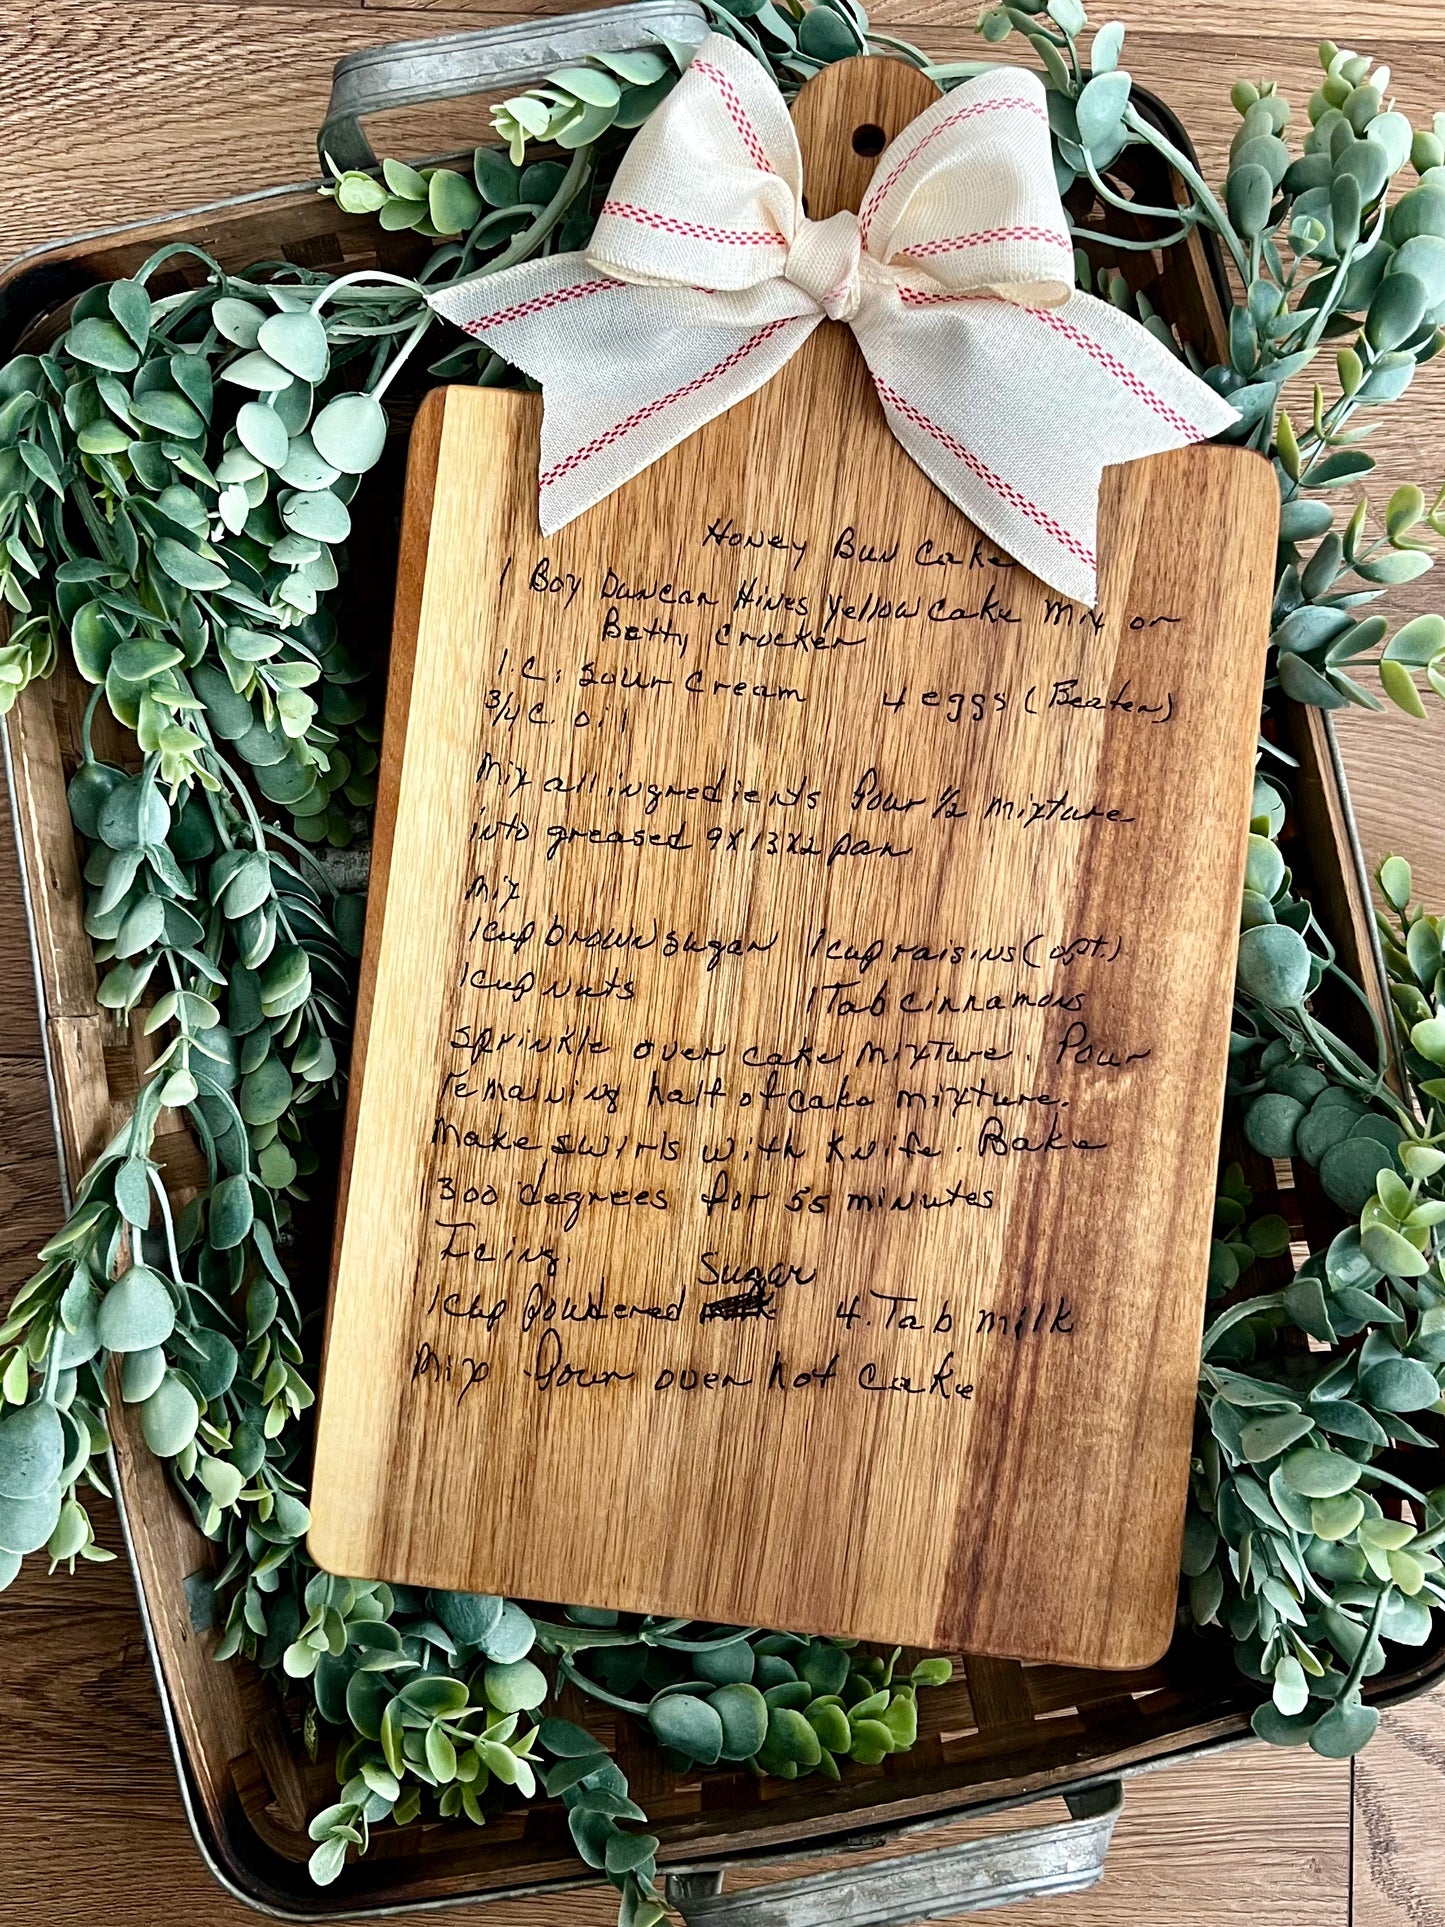 Honey Bun Cake
1 Box Duncan Hines Yellow Cake Mix or
Betty Crocker
1.C. Sour Cream 4 eggs (Beaten)
3/4 C. oil
Mix all ingredients Pour 1/2 mixture
into greased 9X13X2 pan
Mix
1 cup brown sugar 1 cup raisins (opt.)
1 cup nuts 1 Tab cinnamons
Sprinkle over cake mixture. Pour
remaining half of cake mixture.
Make swirls with knife. Bake
300 degrees for 55 minutes
Icing.
Sugar
1 cup powdered 4. Tab milk
Mix Pour over hot cake